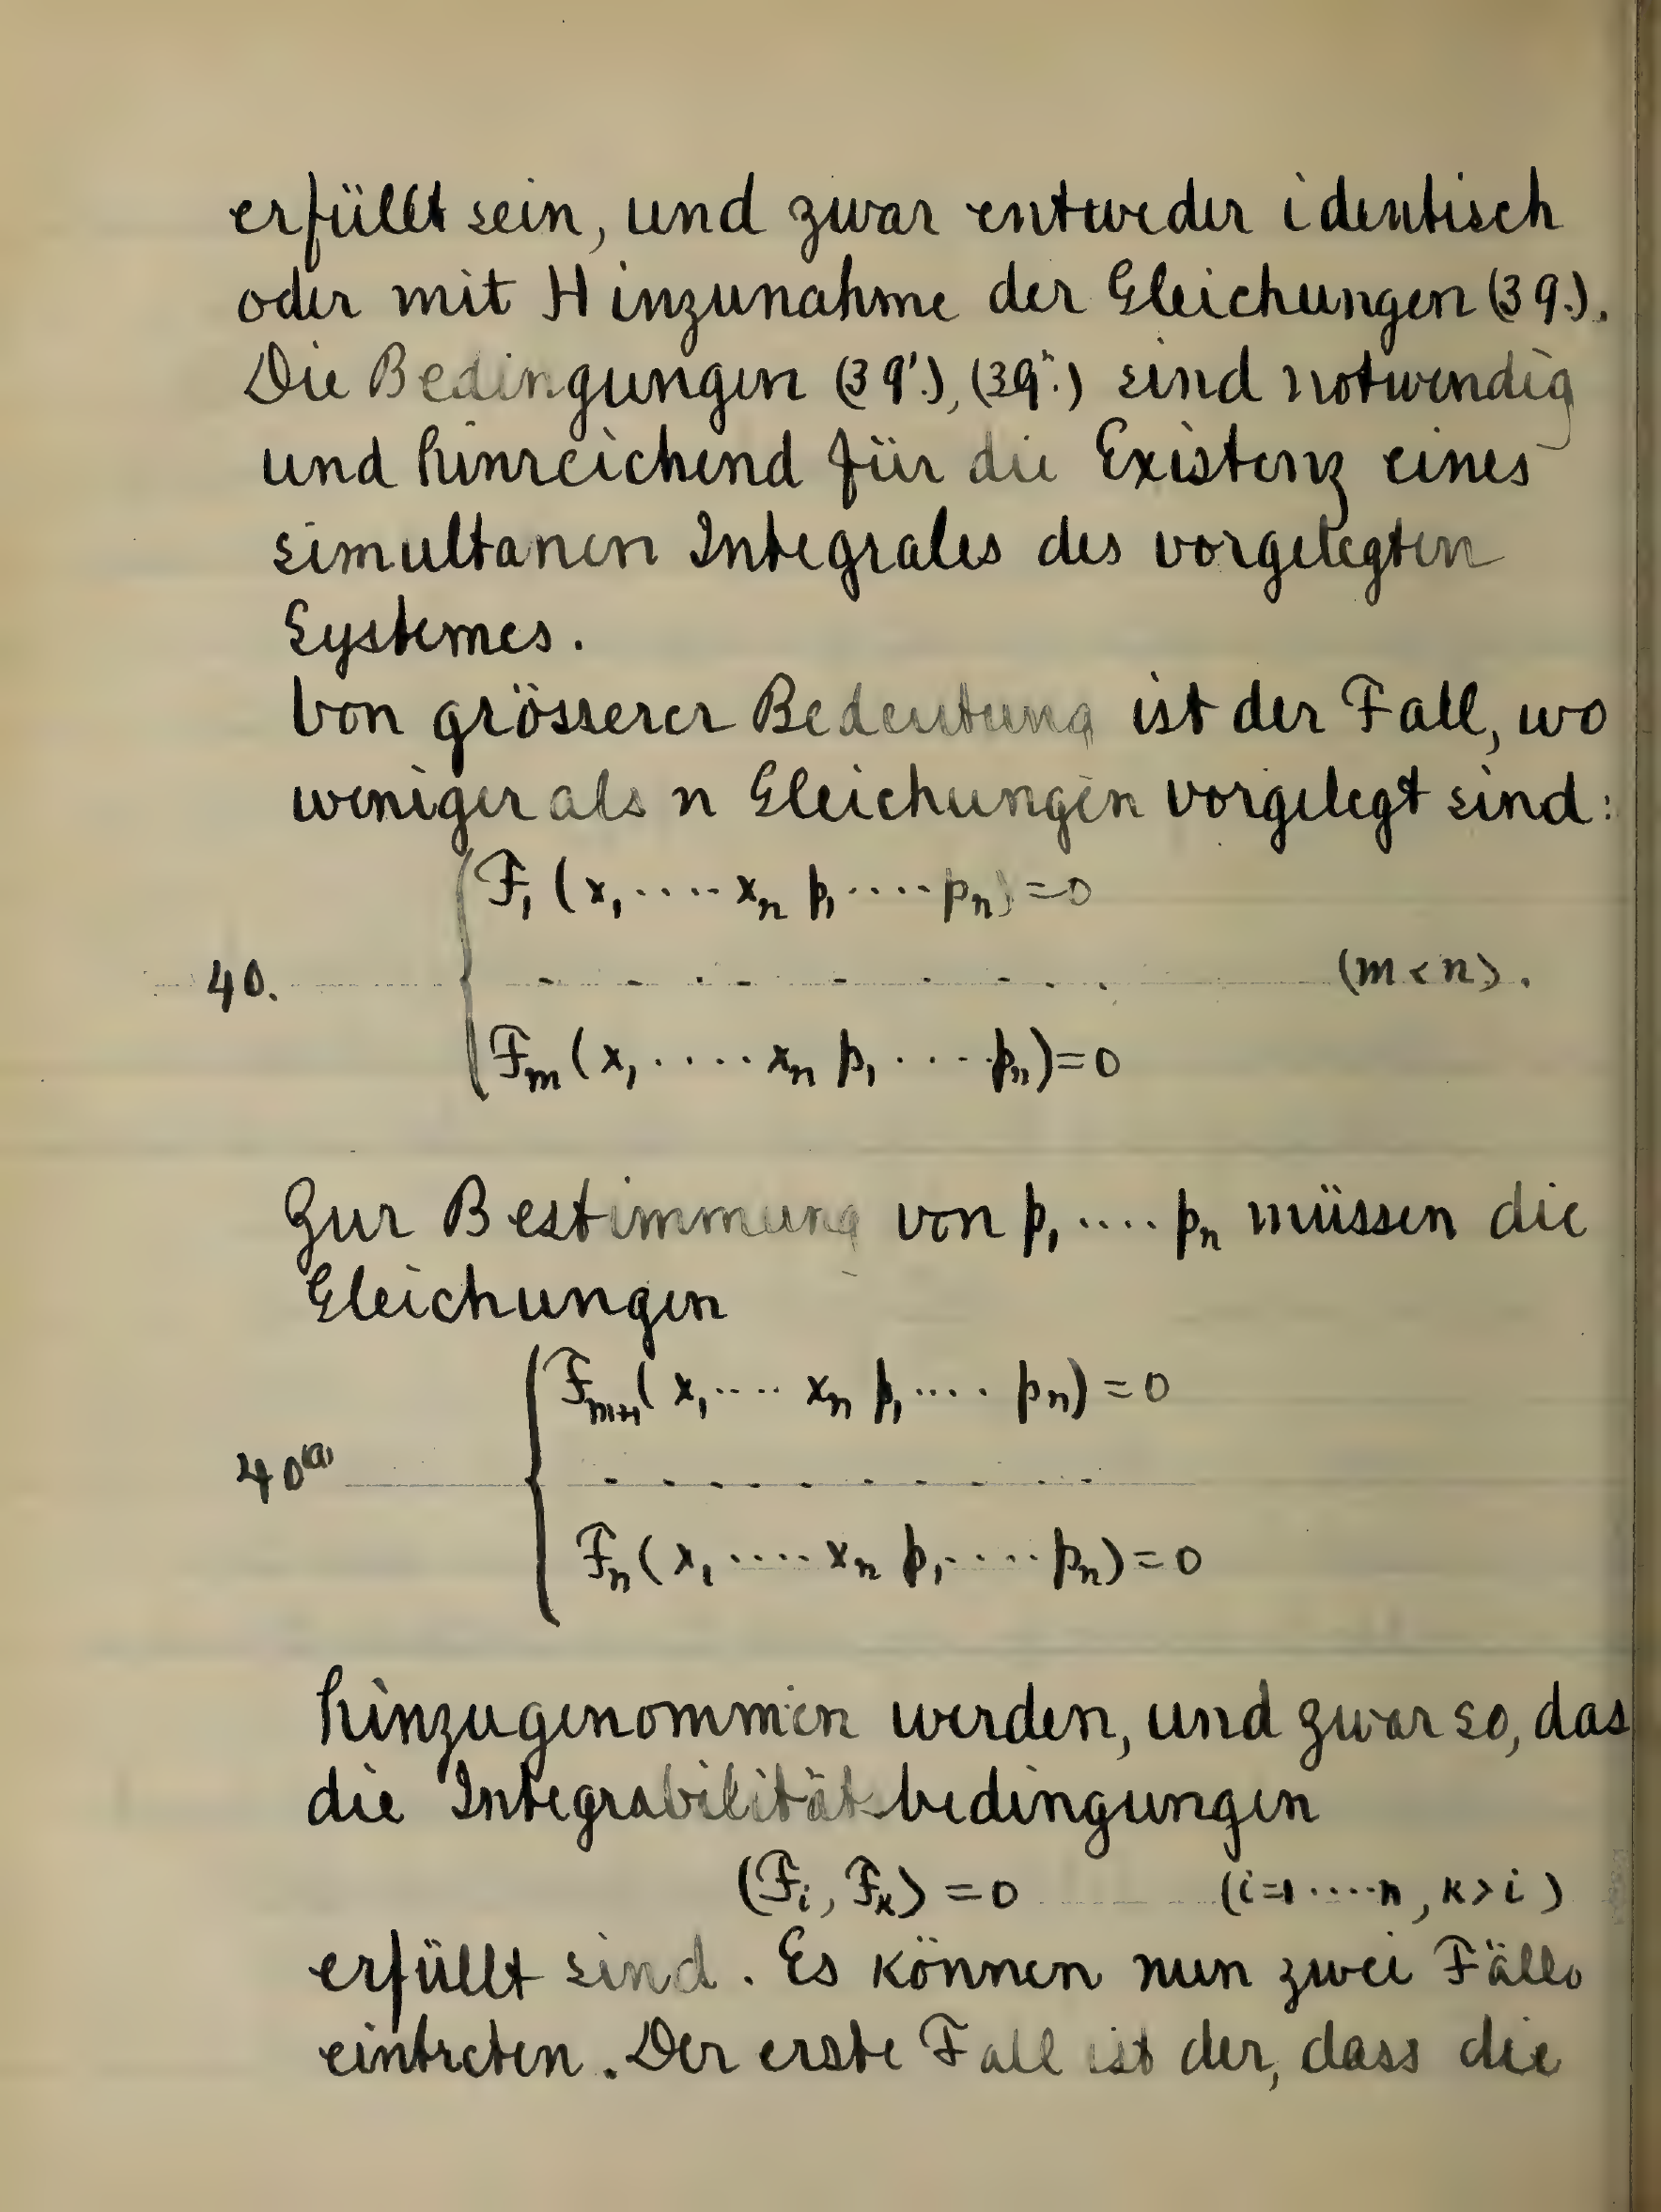 erfüllt sein, und zwar entweder identisch
oder mit Hinzunahme der Gleichungen (39.).
Die Bedingungen (39'.), (39".) sind notwendig
und hinreichend für die Existenz eines
simultanen Integrales des vorgelegten
Systemes.
Von grösserer Bedeutung ist der Fall, wo
weniger als n Gleichungen vorgelegt sind:
F₁ (x₁ ····· xₙ p₁ ····· pₙ) = 0
40. - - - - - - - - - (m < n).
Fₘ (x₁ ····· xₙ p₁ ····· pₙ) = 0
Zur Bestimmung von p₁ ···· pₙ müssen die
Gleichungen
Fₘ₊₁ (x₁ ····· xₙ p₁ ····· pₙ) = 0
40⁽ᵃ⁾ - - - - - - - - - -
Fₙ (x₁ ····· xₙ p₁ ····· pₙ) = 0
hinzugenommen werden, und zwar so, das
die Integrabilitätsbedingungen
(Fᵢ, Fₖ) = 0 (i=1 ····· n, k > i)
erfüllt sind. Es können nun zwei Fälle
eintreten. Der erste Fall ist der, dass die